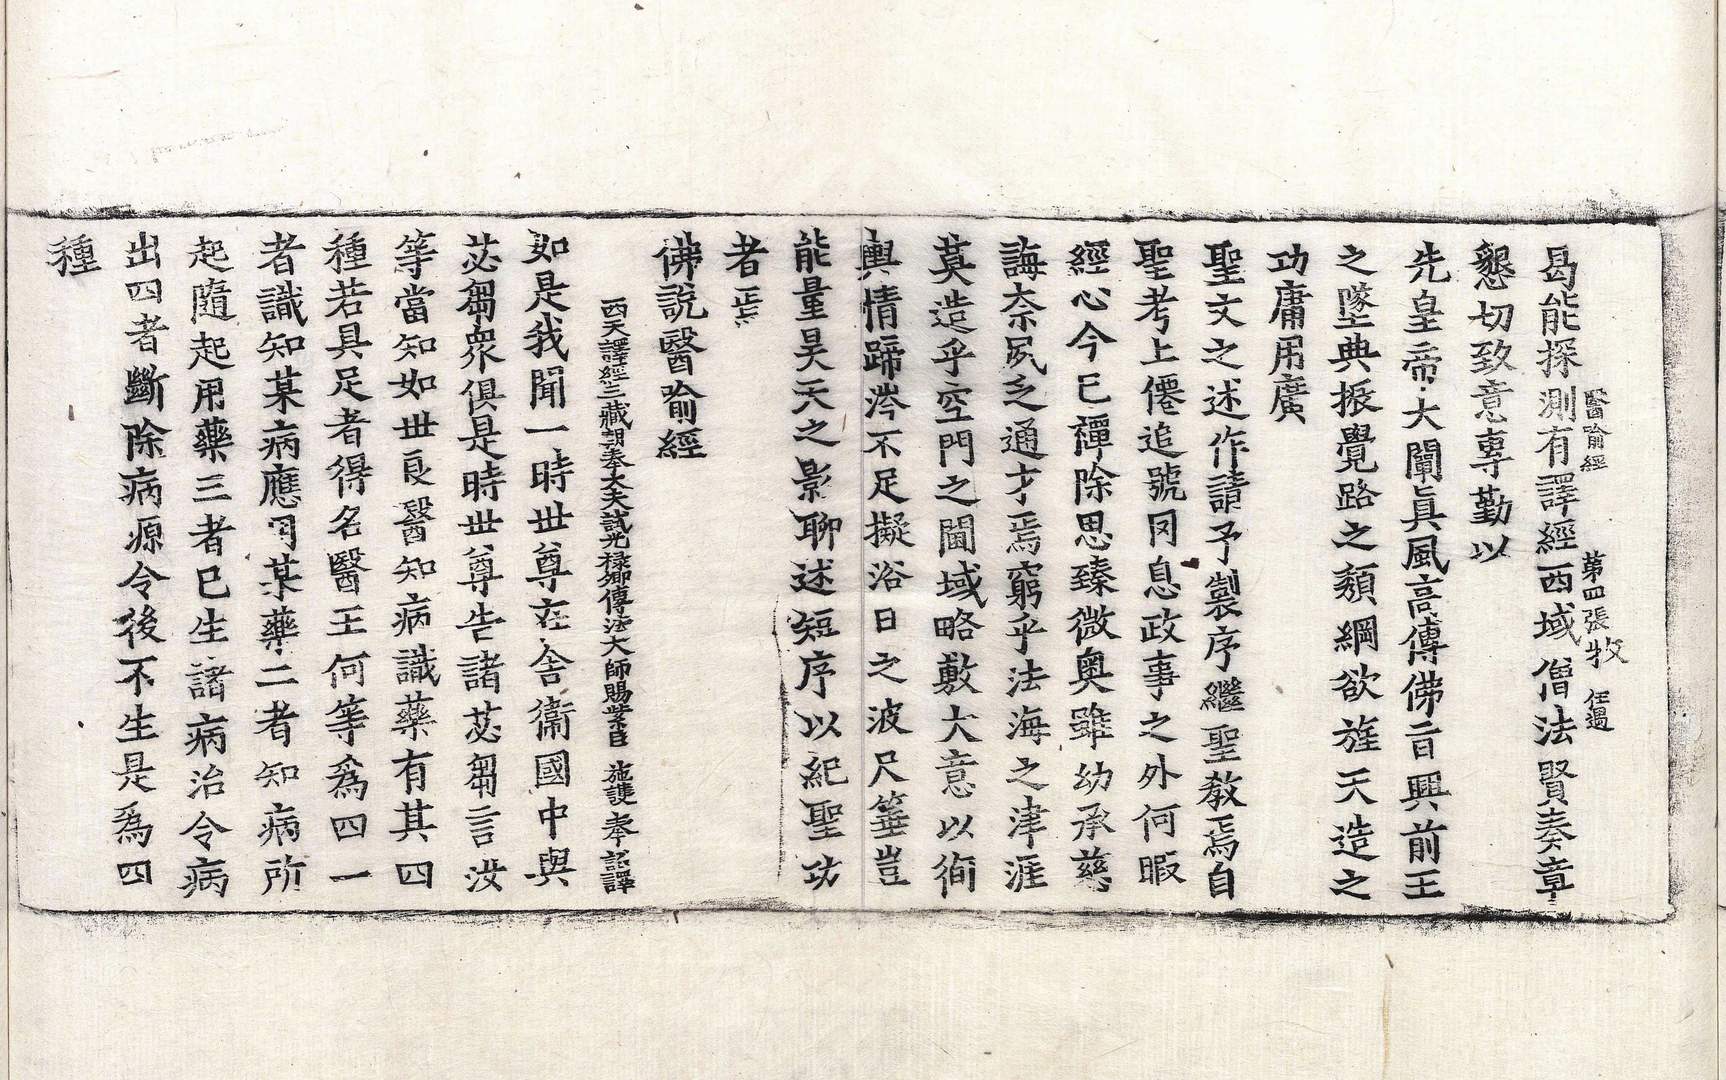 醫喻經 第四張 牧 任過
曷能探測有譯經西域僧法賢奏章
懇切致意專勤以
先皇帝大闡眞風高傳佛旨興前王
之墜典振覺路之頹綱欲旌天造之
功庸用廣
聖文之述作請予製序繼聖教焉自
聖考上僊追號罔息政事之外何暇
經心今已禫除思臻微奥雖幼承慈
誨奈夙乏通才焉窮乎法海之津涯
莫造乎空門之閫域略敷大意以徇
輿情蹄涔不足擬浴日之波尺箠豈
能量昊天之影聊述短序以紀聖功
者焉
佛説醫喻經
西天譯經三藏朝奉大夫試光祿卿傳法大師賜紫臣 施護 奉 詔譯
如是我聞一時世尊在舍衞國中與
苾芻衆俱是時世尊告諸苾芻言汝
等當知如世良醫知病識藥有其四
種若具足者得名醫王何等爲四一
者識知某病應用某藥二者知病所
起隨起用藥三者已生諸病治令病
出四者斷除病源令後不生是爲四
種